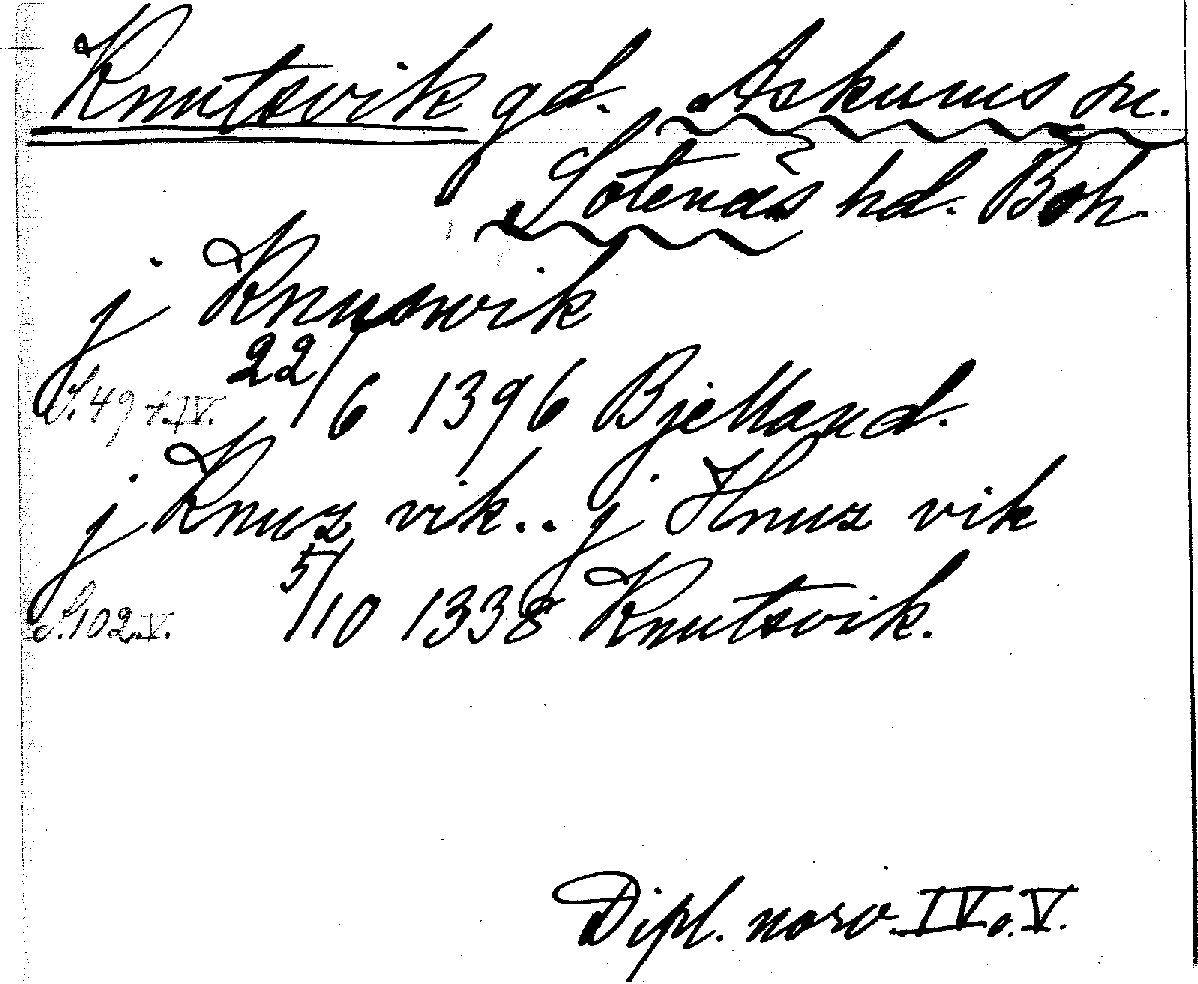 Knutsvik gd. Askums sn.
Sotenäs hd. Boh
j Knuswik
S. 497. IV. 22/6 1396 Bjelland.
j Knuz vik.. j Hnuz vik
S. 102. V. 5/10 1338 Knutsvik.
Dipl. norv. IV o. V.